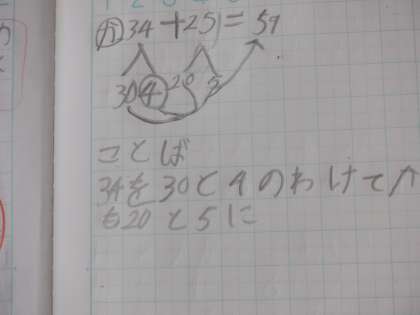 34+25=59
30 4 20 5
ことば
34を30と4のわけて
も20と5に